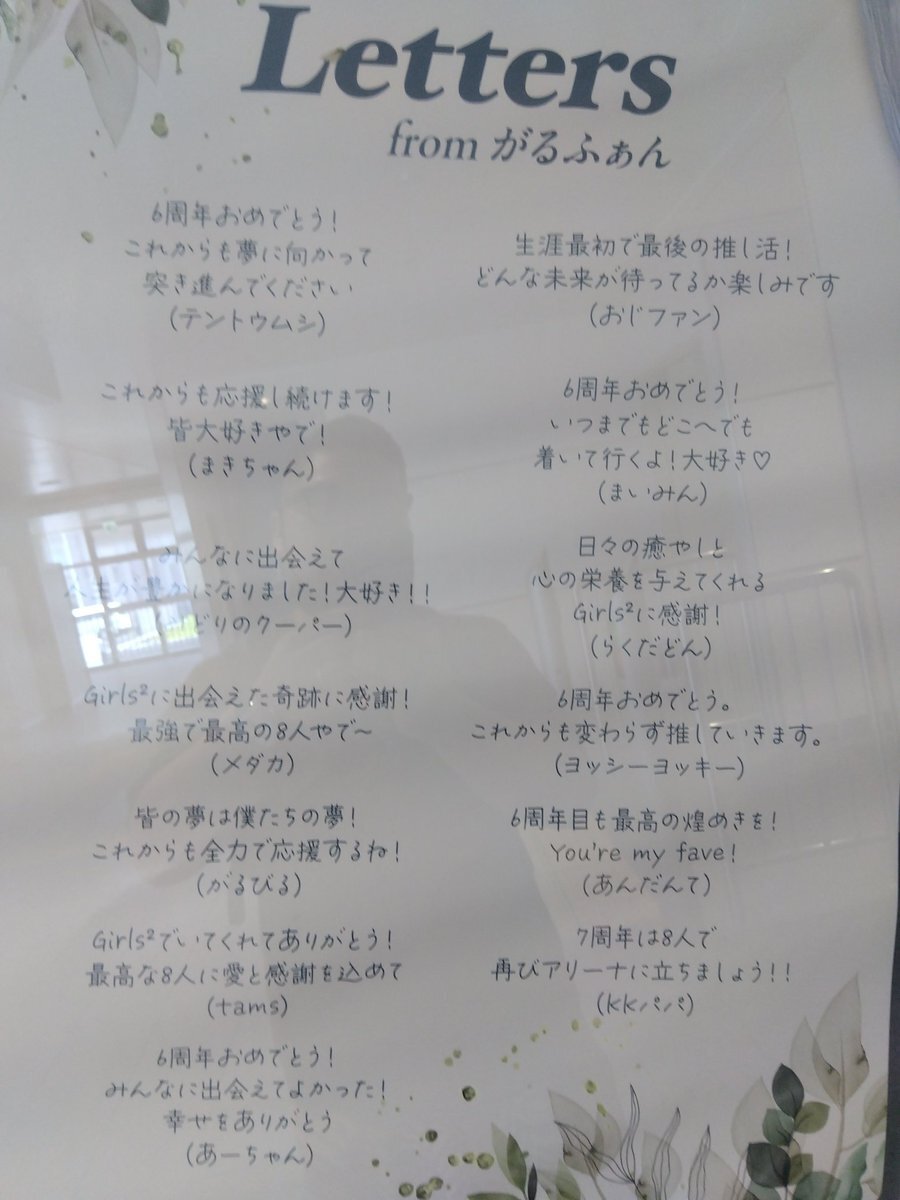 Letters
from がるふぁん
6周年おめでとう!
これからも夢に向かって
突き進んでください
(テントウムシ)
これからも応援し続けます!
皆大好きやで!
(まきちゃん)
みんなに出会えて
人生が豊かになりました!大好き!!
どりのクーパー)
Girls²に出会えた奇跡に感謝!
最強で最高の8人やで〜
(メダカ)
皆の夢は僕たちの夢!
これからも全力で応援するね!
(がるびる)
Girls²でいてくれてありがとう!
最高な8人に愛と感謝を込めて
(tams)
6周年おめでとう!
みんなに出会えてよかった!
幸せをありがとう
(あーちゃん)
生涯最初で最後の推し活!
どんな未来が待ってるか楽しみです
(おじファン)
6周年おめでとう!
いつまでもどこへでも
着いて行くよ!大好き♡
(まいみん)
日々の癒やしと
心の栄養を与えてくれる
Girls²に感謝!
(らくだどん)
6周年おめでとう。
これからも変わらず推していきます。
(ヨッシーヨッキー)
6周年目も最高の煌めきを!
You're my fave!
(あんだんて)
7周年は8人で
再びアリーナに立ちましょう!!
(KKパパ)